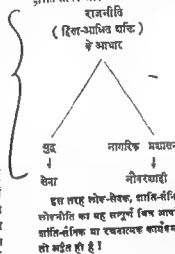 राजनीति
( हिंसा-आश्रित शक्ति )
के आधार
युद्ध नागरिक प्रशासन
सेना नौकरशाही
इस तरह लोक-सेवक, शांति-सैनि
लोकनीति का यह सम्पूर्ण चित्र आप
शांति-सैनिक या रचनात्मक कार्यक्रम
तो अद्वैत ही है !